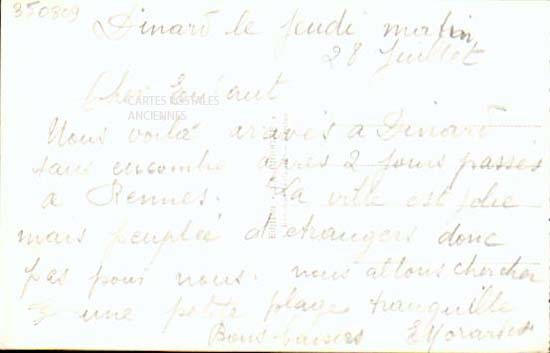 350809
Dinard le jeudi matin
28 Juillet
Cher Enfant
CARTES POSTALES
ANCIENNES
Nous voilà arrivés a Dinard
sans encombre après 2 jours passés
a Rennes. La ville est jolie
mais peuplée d'etrangers donc
pas pour nous. nous allons chercher
une petite plage tranquille
Bons baisers